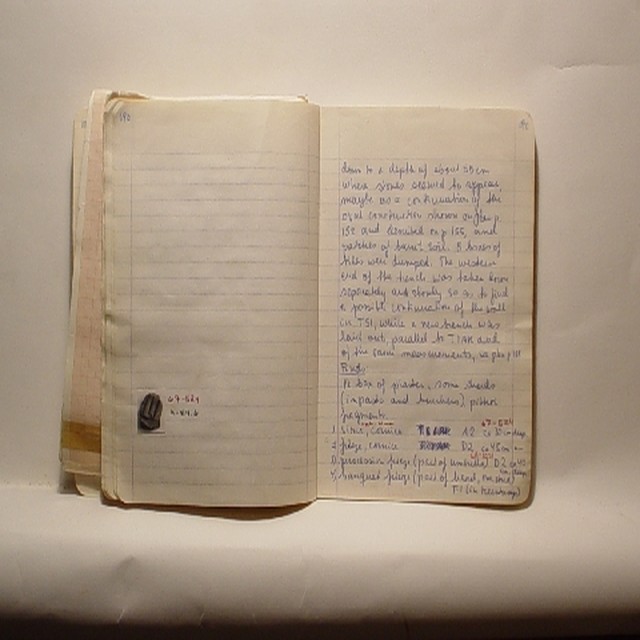 190
67-524
down to a depth of about 35 cm
where stones seemed to appear,
maybe as a continuation of the
oval construction shown on p.
152 and described on p 155, and
patches of burnt soil. 8 boxes of
tiles were dumped. The western
end of the trench was taken down
separately and slowly so as to find
a possible continuation of the wall
in T51, while a new trench was
laid out, parallel to T1AK and
of the same measurements, see plan p 191
Finds:
A box of plaster, some sherds
(impasto and bucchero), pithos
fragments.
67-524
1. Sima, cornice A2 ca 30 cm deep
2. frieze, cornice D2 ca 45 cm
3. procession frieze (part of umbrella) D2 ca 40
4. banquet frieze (part of head,